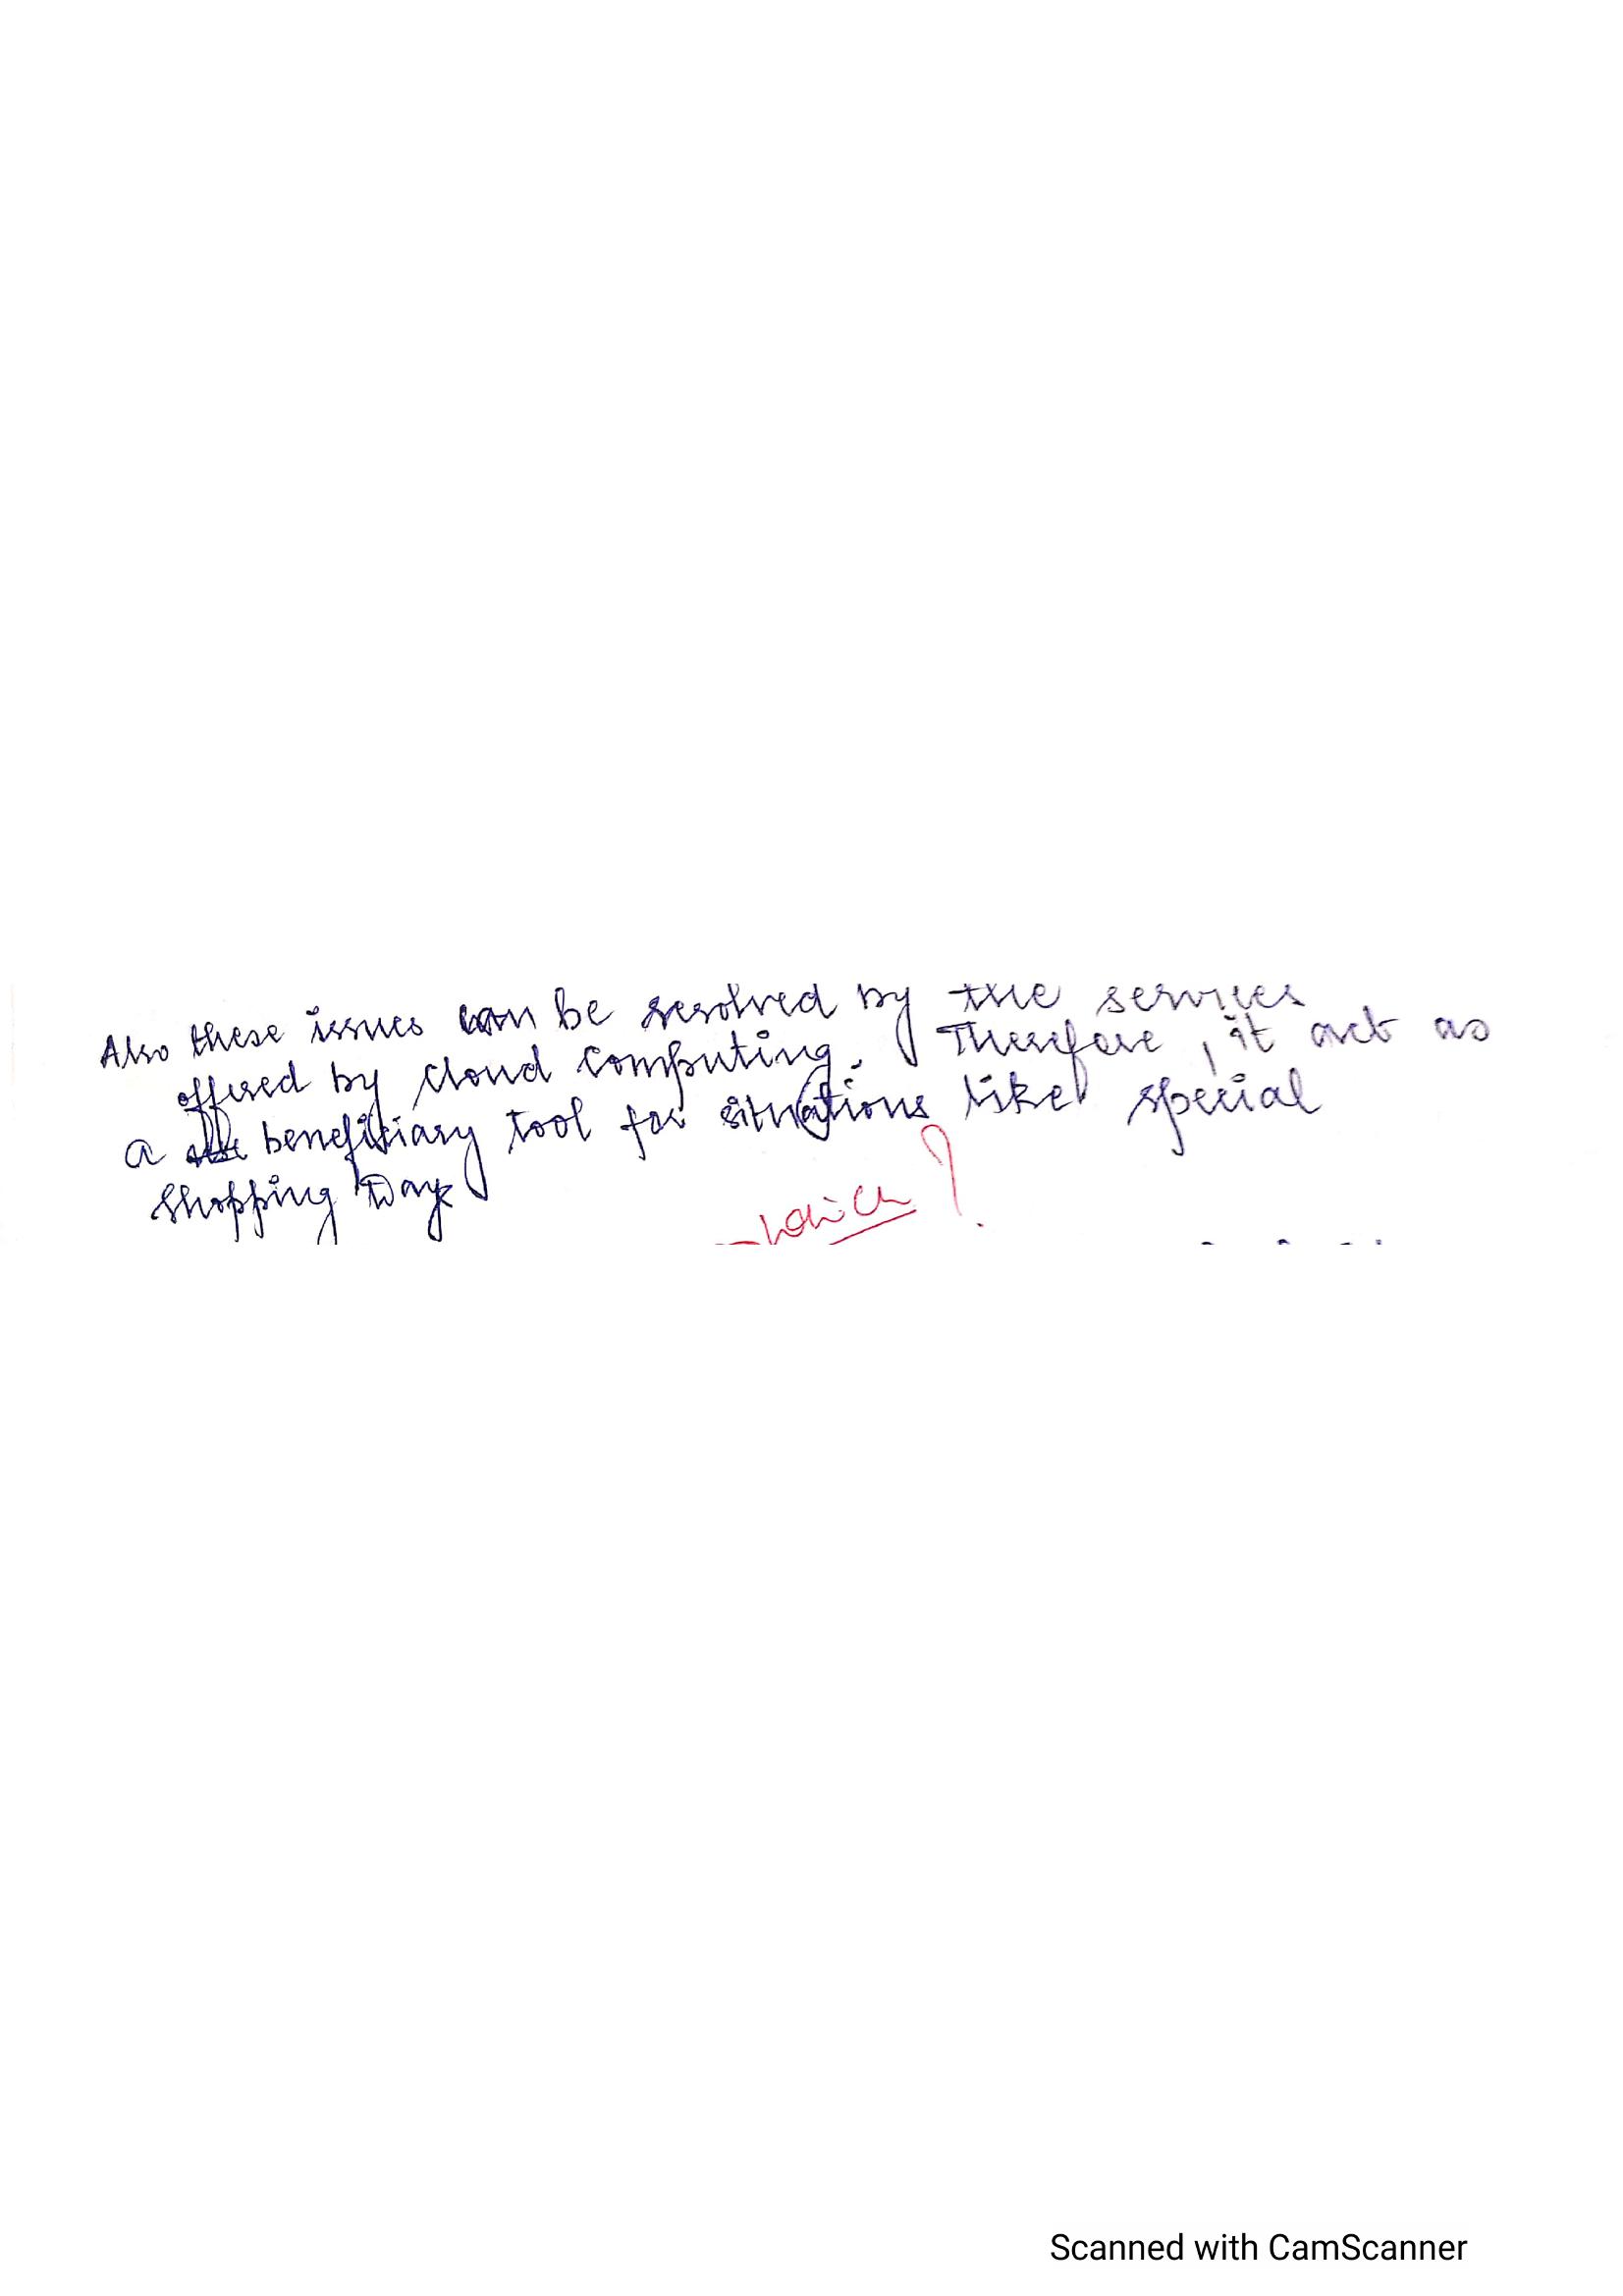 Also these issues can be resolved by the services
offered by cloud computing. Therefore, it act as
a benefitiary tool for situations like special
shopping Day
which?
Scanned with CamScanner